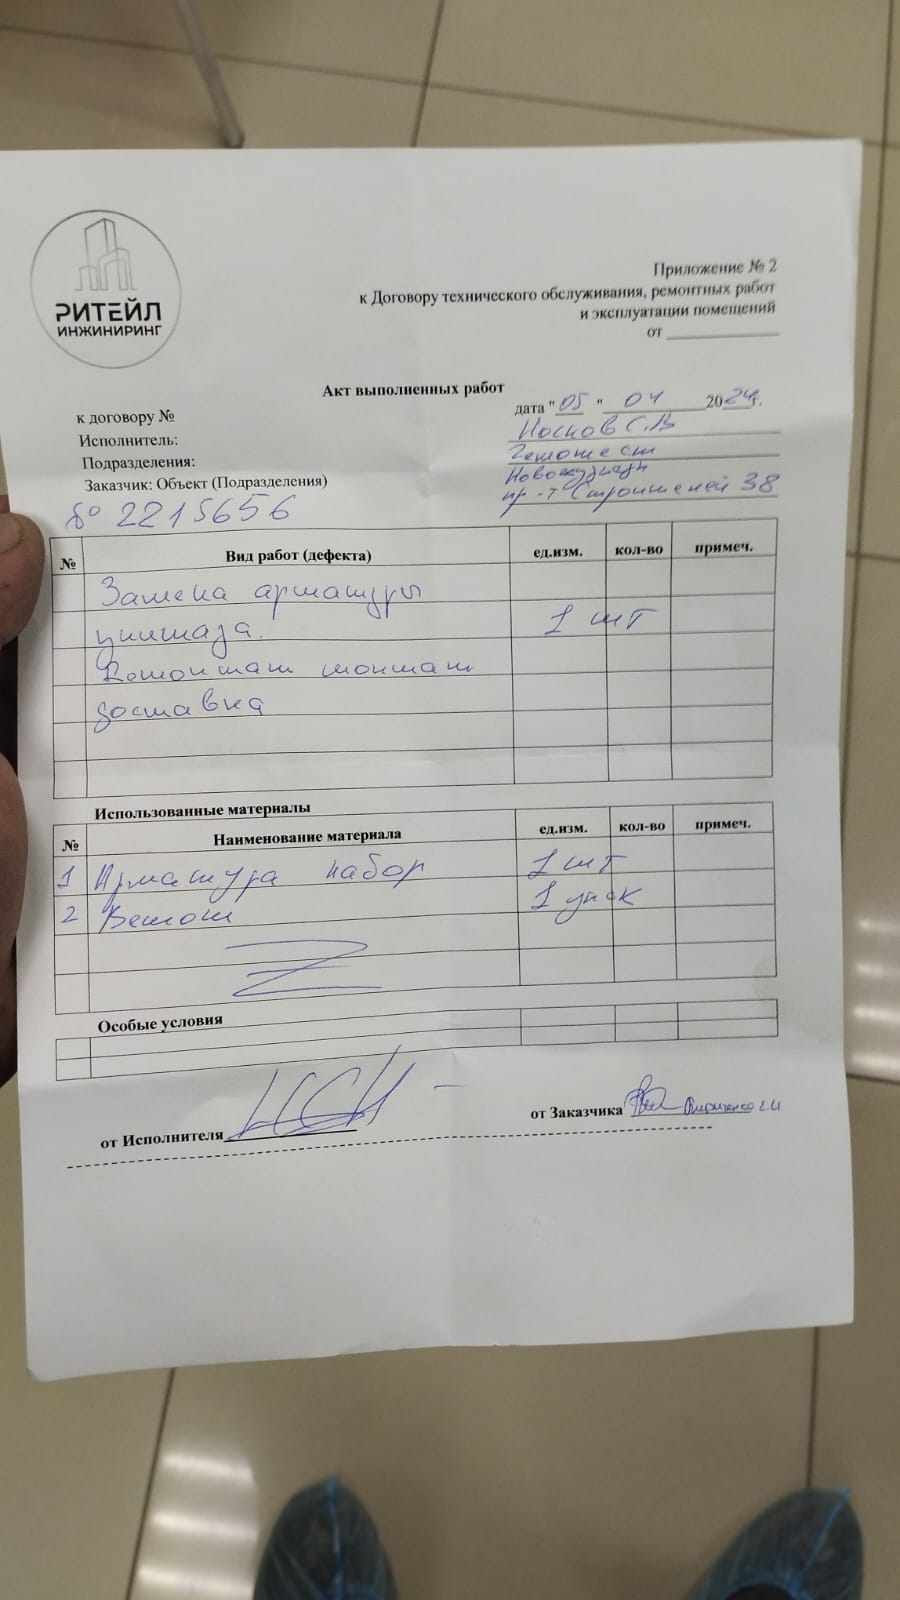 РИТЕЙЛ
ИНЖИНИРИНГ
Приложение № 2
к Договору технического обслуживания, ремонтных работ
и эксплуатации помещений
от
Акт выполненных работ
к договору №
дата "05" 04 2024г.
Исполнитель: Носков С.В
Подразделения: Гемотест
Заказчик: Объект (Подразделения) Новокузнецк
пр-т Строителей 38
№ 2215656
№ Вид работ (дефекта) ед.изм. кол-во примеч.
Замена арматуры
унитаза. 1 шт
Демонтаж монтаж
доставка
Использованные материалы
№ Наименование материала ед.изм. кол-во примеч.
1 Арматура набор 1 шт
2 Ветош 1 упак
Особые условия
от Исполнителя
от Заказчика